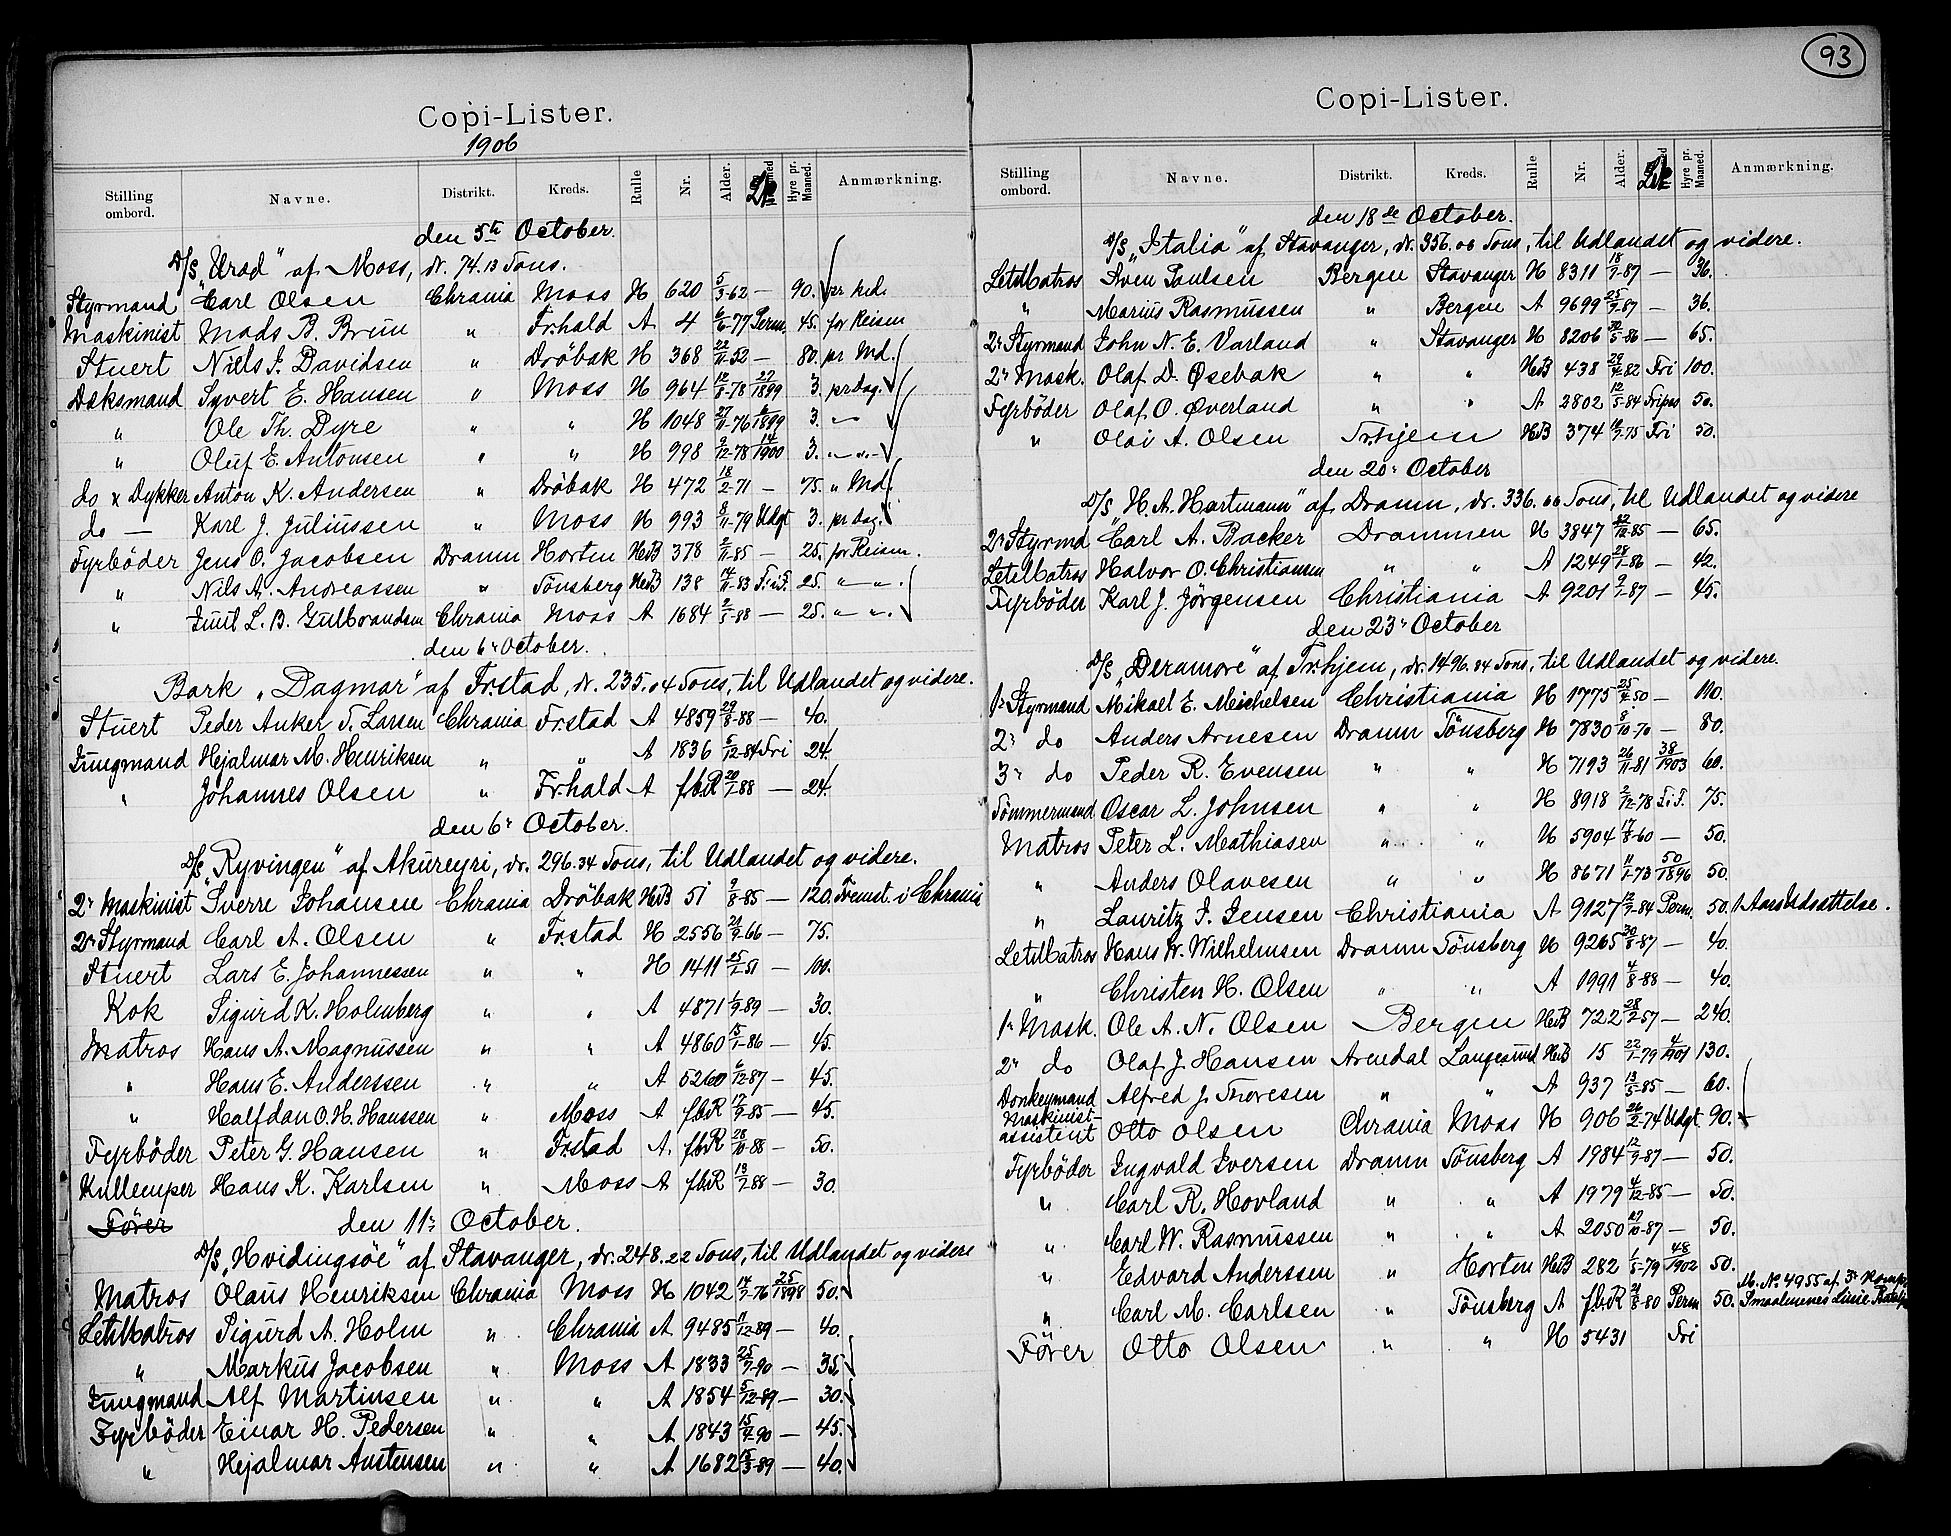 Copi-Lister.
1906
Stilling ombord. Navne. Distrikt. Kreds. Rulle Nr. Alder. Hyre pr. Maaned. Anmærkning.
den 5te October.
D/S „Urad“ af Moss, dr. 74.13 Tons.
Styrmand Carl Olsen Chrania Moss H 620 5/3-62 — 90. pr Md.
Maskinist Mads B. Brun " Frhald A 4 6/6-77 Perm. 45. for Reisen
Stuert Niels J. Davidsen " Dröbak H 368 22/11-52 — 80. pr Md.
Dæksmand Syvert E. Hansen " Moss H 964 12/8-78 27/1899 3. pr dag.
" Ole Th. Dyre " " H 1048 27/11-76 6/1899 3. —
" Oluf E. Antonsen " " H 998 2/12-78 14/1900 3. " — " —
do x Dykker Anton K. Andersen " Dröbak H 472 18/2-71 — 75. " Md.
do — Karl J. Juliussen " Moss H 993 8/11-79 Udgt 3. pr dag.
Fyrböder Jens O. Jacobsen Dramn Horten HvB 378 2/11-85 — 25. for Reisen.
" Nils A. Andreassen " Tönsberg HvB 138 14/11-83 F.i.F. 25. " — " .
" Juul L. B. Gulbrandsen Chrania Moss A 1684 2/5-88 — 25. " — " .
den 6te October.
Bark „Dagmar“ af Frstad, dr. 235.04 Tons, til Udlandet og videre.
Stuert Peder Anker T. Larsen Chrania Frstad A 4859 29/8-88 — 40.
Jungmand Hejalmar M. Henriksen " " A 1836 5/12-84 Fri 24.
" Johannes Olsen " Frhald A fbR 20/1-88 — 24.
den 6te October.
D/S „Ryvingen“ af Akureyri, dr. 296.34 Tons, til Udlandet og videre.
2n Maskinist Sverre Johansen Chrania Dröbak HvB 51 9/8-85 — 120. Fremst. i Chrania
2n Styrmand Carl A. Olsen " Frstad H 2556 21/9-66 — 75.
Stuert Lars E. Johannessen " " H 1411 25/1-51 — 100.
Kok Sigurd K. Holmberg " " A 4871 1/9-89 — 30.
Matros Hans A. Magnussen " " A 4860 15/1-86 — 45.
" Hans E. Anderssen " " A 5260 6/12-87 — 45.
" Halfdan O. H. Hanssen " Moss A fbR 17/9-85 — 45.
Fyrböder Peter G. Hansen " Frstad A. fbR 28/10-88 — 50.
Kullemper Hans K. Karlsen " Moss A fbR 13/7-88 — 30.
Förer den 11te October.
D/S „Hvidingsöe“ af Stavanger, dr. 248.22 Tons, til Udlandet og videre
Matros Olaus Henriksen Chrania Moss H 1042 14/7-76 25/1898 50.
LetMatros Sigurd A. Holm " Chrania A 9485 11/12-89 — 40.
" Markus Jacobsen " Moss A 1833 25/7-90 — 35.
Jungmand Alf Martinsen " " A 1854 5/12-89 — 30.
Fyrböder Einar H. Pedersen " " A 1843 15/4-90 — 45.
" Hejalmar Austensen " " A 1682 15/3-89 — 40.
93
Copi-Lister.
Stilling ombord. Navne. Distrikt. Kreds. Rulle Nr. Alder. Hyre pr. Maaned. Anmærkning.
den 18de October.
D/S „Italia“ af Stavanger, dr. 356.06 Tons, til Udlandet og videre.
LetMatros Sven Paulsen Bergen Stavanger H 8311 18/7-87 — 36.
" Marius Rasmussen " Bergen A 9699 25/9-87 — 36.
2n Styrmand John N. E. Varland " Stavanger H 8206 30/5-86 — 65.
2n Mask. Olaf D. Øsebak " " HvB 438 29/4-82 Fri 100.
Fyrböder Olaf O. Øverland " " A 2802 12/5-84 Fripas 50.
" Olai A. Olsen Trhjem HvB 374 12/7-75 Fri 50.
den 20n October
D/S „H. A. Hartmann“ af Dramn, dr. 336.66 Tons, til Udlandet og videre
2n Styrmd Carl A. Backer Drammen H 3847 22/12-85 — 65.
LetMatros Halvor O. Christiansen " " A 1249 28/1-86 — 42.
Fyrböder Karl J. Jörgensen Christiania A 9201 9/7-87 — 45.
den 23n October
D/S „Deramore“ af Trhjem, dr. 1496.34 Tons, til Udlandet og videre.
1n Styrmand Mikael E. Meichelsen Christiania H 1775 25/4-50 — 110.
2n do Anders Arnesen Dramn Tönsberg H 7830 8/10-70 — 80.
3n do Peder R. Evensen " " H 7193 26/11-81 38/1903 60.
Tömmermand Oscar L. Johnsen " " H 8918 2/12-78 F.i.F. 75.
Matros Peter L. Mathiasen " " H 5904 17/8-60 — 50.
" Anders Olavesen " " H 8671 11/1-73 50/1896 50.
" Lauritz J. Jensen Christiania A 9127 12/9-84 Perm. 50. 1 Aars Udsættelse.
LetMatros Hans W. Wilhelmsen Dramn Tönsberg H 9265 30/8-87 — 40.
" Christen H. Olsen " " A 1991 4/8-88 — 40.
1n Mask. Ole A. N. Olsen Bergen HvB 722 28/2-57 — 240.
2n do Olaf J. Hansen Arendal Langesund HvB 15 22/1-79 4/1901 130.
Donkeymand Alfred J. Thoresen " " A 937 13/5-85 — 60.
Maskinist-assistent Otto Olsen Chrania Moss H 906 26/2-74 Udgt 90.
Fyrböder Ingvald Iversen Dramn Tönsberg A 1984 12/9-87 — 50.
" Carl R. Hovland " " A 1979 4/12-85 — 50.
" Carl W. Rasmussen " " A 2050 27/10-87 — 50.
" Edvard Anderssen " Horten HvB 282 1/5-79 48/1902 50.
" Carl M. Carlsen " Tönsberg A fbR 21/8-80 Perm 50. M. No 4955 af 3n Komp. Smaalenenes Linie
Förer Otto Olsen " " H 5431 Fri